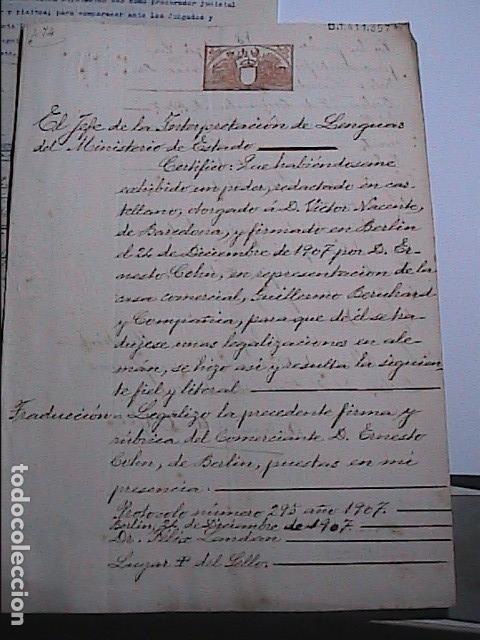 como procurador judicial
para comparecer ante los Juzgados y
El Jefe de la Interpretación de Lenguas
del Ministerio de Estado
Certifico: Que habiéndoseme
exhibido un poder, redactado en cas-
tellano, otorgado á D. Victor Nacente,
de Barcelona, y firmado en Berlin
el 24 de Diciembre de 1907 por D. Er-
nesto Cohn, en representacion de la
casa comercial, Guillermo Bernhard
y Compañia, para que de él se tra-
dujese unas legalizaciones en ale-
mán, se hizo asi y resulta la siguien-
te fiel y literal
Traducción = Legalizo la precedente firma y
rúbrica del Comerciante D. Ernesto
Cohn, de Berlin, puestas en mi
presencia.
Protocolo número 295 año 1907.
Berlin, 24 de Diciembre de 1907.
Dr. Félix Landau
Lugar + del Sello.
todocoleccion